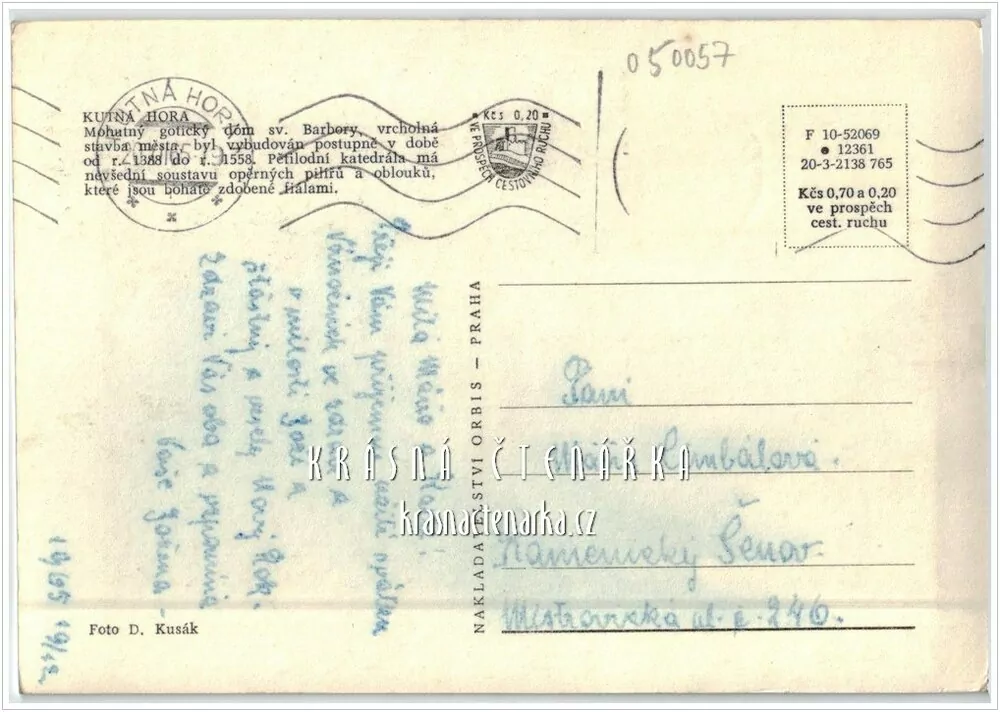 050057
KUTNÁ HORA
KUTNÁ HORA
Mohutný gotický dóm sv. Barbory, vrcholná
stavba města, byl vybudován postupně v době
od r. 1388 do r. 1558. Pětilodní katedrála má
nevšední soustavu opěrných pilířů a oblouků,
které jsou bohatě zdobené fiálami.
Kčs 0,20
VE PROSPĚCH CESTOVNÍHO RUCHU
F 10-52069
● 12361
20-3-2138 765
Kčs 0,70 a 0,20
ve prospěch
cest. ruchu
Milá Máňo a
Přeji Vám příjemné
Vánočních
v milosti Boží a
šťastný a veselý Nový Rok.
Zdraví Vás oba a vzpomíná
Vaše Božena
1965 19/12
NAKLADATELSTVÍ ORBIS — PRAHA
Paní
Máňa Cimbálová.
Kamenický Šenov
Mistrovická ul. č. 246.
KRÁSNÁ ČTENÁŘKA
krasnactenarka.cz
Foto D. Kusák